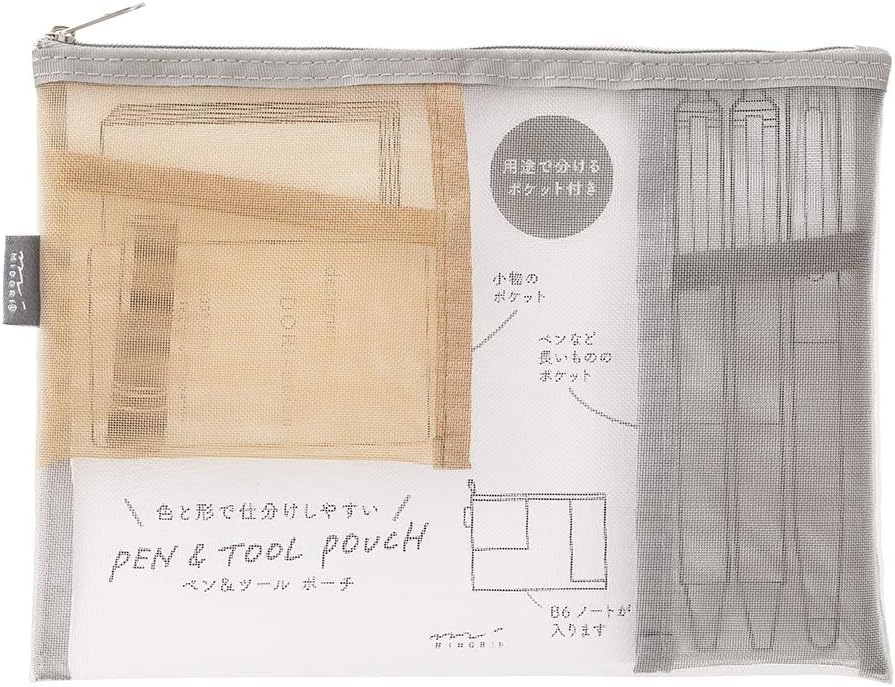 用途で分ける
ポケット付き
MIDORI
小物の
ポケット
ペンなど
長いものの
ポケット
色と形で仕分けしやすい
PEN & TOOL POUCH
ペン&ツール ポーチ
B6 ノートが
入ります
MIDORI